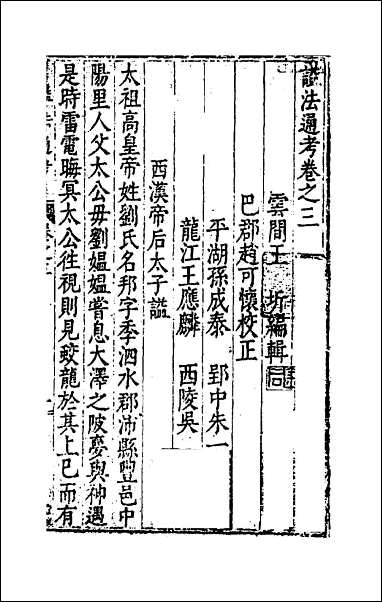 諡法通考卷之三
雲間王 圻編輯
巴郡趙可懷校正
平湖孫成泰 郢中朱一
龍江王應麟 西陵吳
西漢帝后太子諡
太祖高皇帝姓劉氏名邦字季泗水郡沛縣豐邑中
陽里人父太公母劉媼媼嘗息大澤之陂夢與神遇
是時雷電晦冥太公往視則見蛟龍於其上已而有